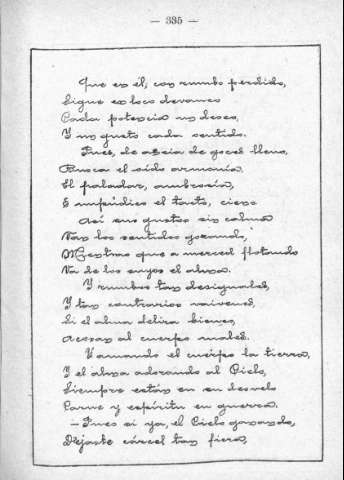 — 335 —
Que en él, con rumbo perdido,
Sigue en loco devaneo
Cada potencia un deseo,
Y un gusto cada sentido.
Pues, de ansia de goces lleno,
Busca el oído armonía,
El paladar, ambrosía,
E impúdico el tacto, cieno
Así sus gustos sin calma
Van los sentidos gozando,
Mientras que a merced flotando
Va de los suyos el alma.
Y rumbos tan desiguales,
Y tan contrarios vaivenes,
Si el alma delira bienes,
Acosan al cuerpo males.
Y amando el cuerpo la tierra,
Y el alma adorando al Cielo,
Siempre están en su desvelo
Carne y espíritu en guerra.
— Pues si ya, el Cielo ganando,
Dejaste cárcel tan fiera,